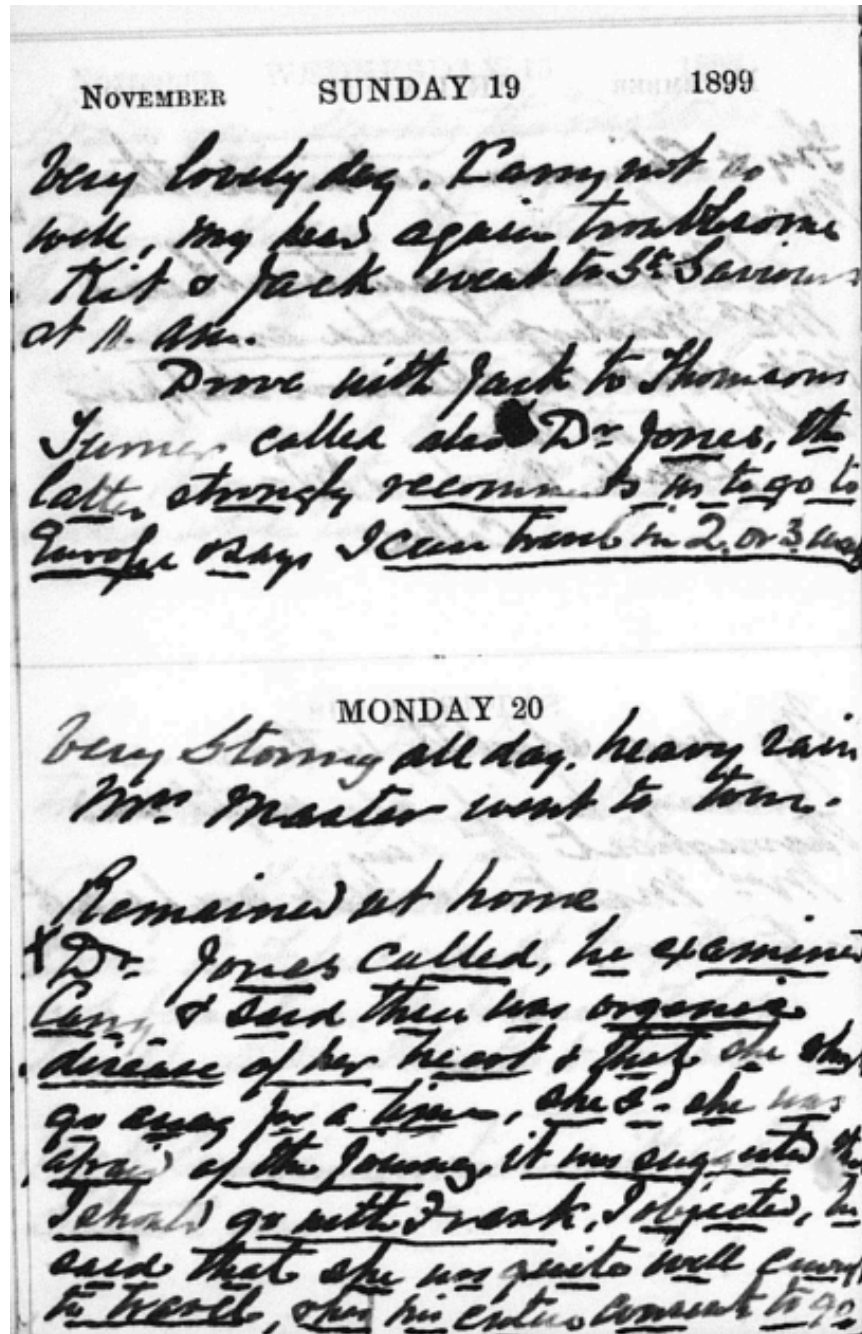 NOVEMBER SUNDAY 19 1899
Very lovely day. Carry not so
well, my head again troublesome
Kit & Jack went to St. Saviours
at 11. am.
Drove with Jack to Thomsons
Turner called also Dr Jones, the
latter strongly recommends us to go to
Europe & says I can travel in 2. or 3. 
MONDAY 20
Very Stormy all day, heavy rain
Mrs. Master went to town.
Remained at home
x Dr. Jones called, he examined
Carry & said there was organic
disease of her heart & that she
go away for a time, she sd. she was
afraid of the journey, it was suggested
I should go with Frank, I objected, he
said that she was quite well enough
to travel, & has his entire consent to go